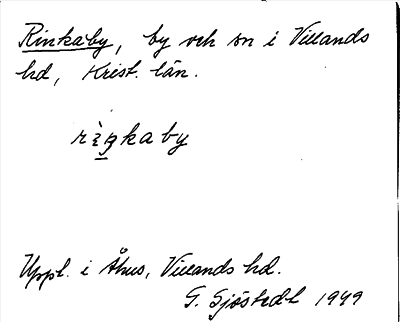 Rinkaby, by och sn i Villands
hd, Krist. län.
rìŋkaby
Uppl. i Åhus, Villands hd.
G. Sjöstedt 1949